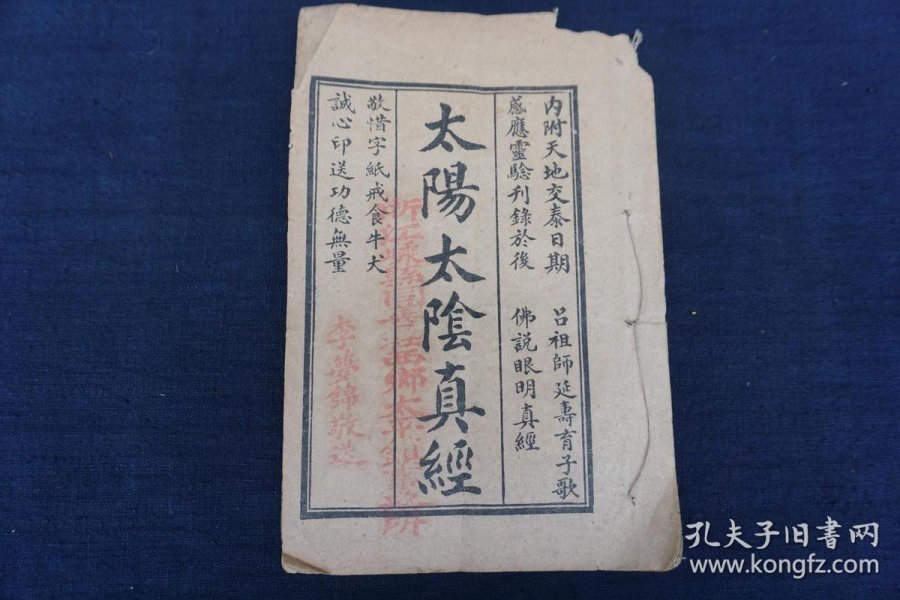 内附天地交泰日期
呂祖師延壽育子歌
感應靈驗刊錄於後
佛説眼明真經
太陽太陰真經
敬惜字紙戒食牛犬
誠心印送功德無量
李夢錦敬送
孔夫子旧书网
www.kongfz.com